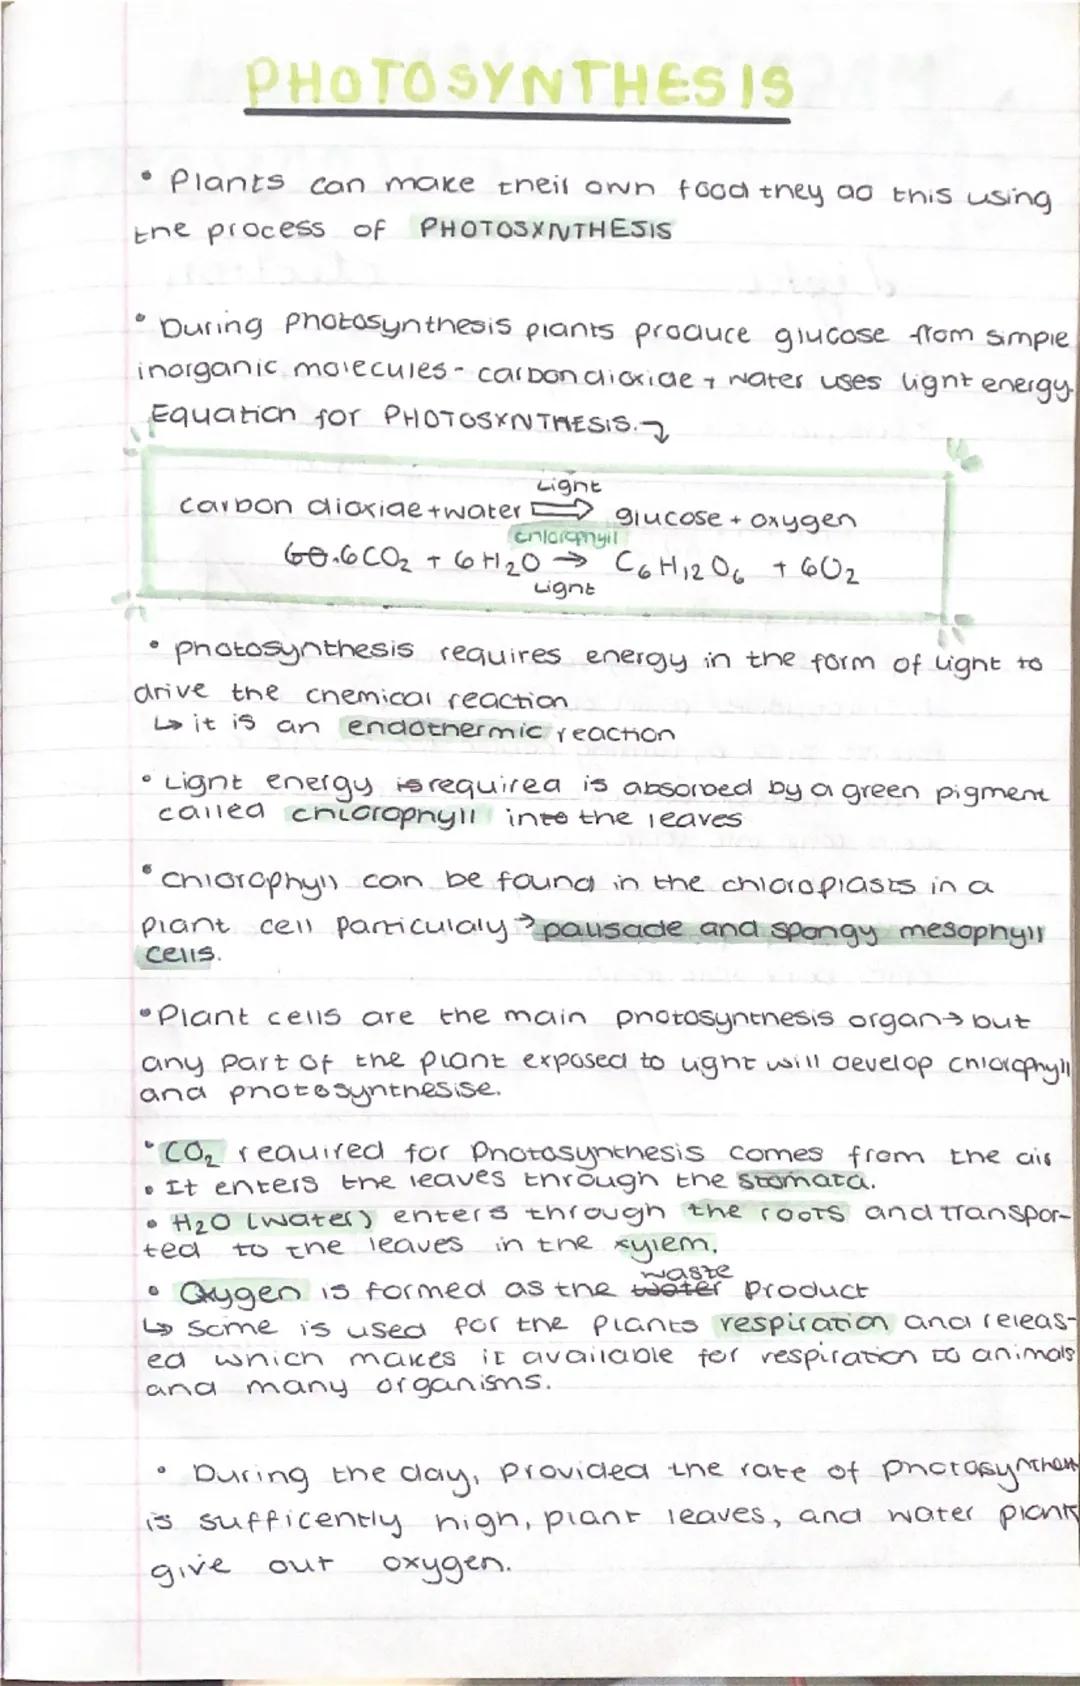 PHOTOSYNTHESIS
• Plants can make their own food they do this using
the process of PHOTOSYNTHESIS
• During Photosynthesis plants produce glucose from simple
inorganic molecules - carbon dioxide + water uses light energy.
Equation for PHOTOSYNTHESIS.
Light
carbon dioxide + water ⇒ glucose + oxygen
chlorophyll
6CO₂ + 6H₂O → C₆H₁₂O₆ + 6O₂
Light
• Photosynthesis requires energy in the form of light to
drive the chemical reaction
↳ it is an endothermic reaction
• Light energy is required is absorbed by a green pigment
called chlorophyll into the leaves
• chlorophyll can be found in the chloroplasts in a
plant cell particulaly → palisade and spongy mesophyll
cells.
• Plant cells are the main photosynthesis organ → but
any part of the plant exposed to light will develop chlorophyll
and photosynthesise.
• CO₂ required for Photosynthesis comes from the air
• It enters the leaves through the stomata.
• H₂O (water) enters through the roots and transpor-
ted to the leaves in the xylem.
waste
• Oxygen is formed as the water product
↳ Some is used for the plants respiration and releas-
ed which makes it available for respiration to animals
and many organisms.
• During the day, provided the rate of
is sufficently high, plant leaves, and water plants
give out oxygen.